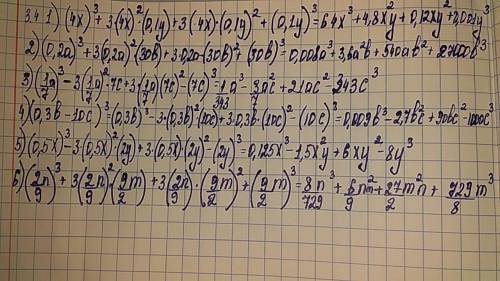 341) (4x)³+3(4x)²(0,1y)+3(4x)(0,1y)²+(0,1y)³=64x³+4,8x²y+0,12xy²+0,001y³
2) (0,2a)³+3(0,2a)²(30b)+3·0,2a·(30b)²+(30b)³=0,008a³+3,6a²b+540ab²+27000b³
3) (1/7a)³-3(1/7a)²·7c+3(1/7a)(7c)²-(7c)³=1/343a³-3/7a²c+21ac²-343c³
4) (0,3b-10c)³=(0,3b)³-3·(0,3b)²(10c)+3·0,3b·(10c)²-(10c)³=0,009b³-2,7b²c+90bc²-1000c³
5) (0,5x)³-3(0,5x)²(2y)+3·(0,5x)·(2y)²-(2y)³=0,125x³-1,5x²y+6xy²-8y³
6) (2n/9)³+3(2n/9)²(9m/2)+3(2n/9)·(9m/2)²+(9m/2)³=8n³/729+6n²m/9+27m²n/2+729m³/8